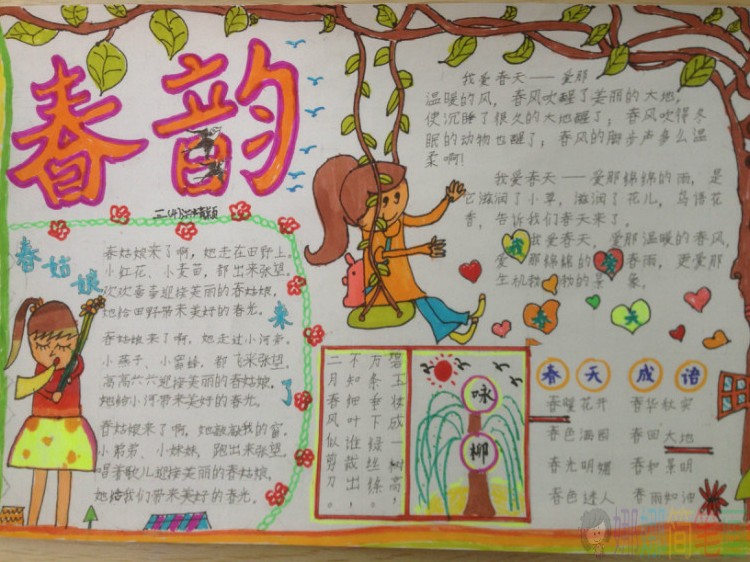 春韵
春姑娘来了
春姑娘来了啊，她走在田野上。
小红花、小麦苗，都出来张望。
欢欢喜喜迎接美丽的春姑娘，
她给田野带来美好的春光。
春姑娘来了啊，她走过小河旁。
小燕子、小蜜蜂，都飞来张望。
高高兴兴迎接美丽的春姑娘，
她给小河带来美好的春光。
春姑娘来了啊，她敲敲我的窗。
小弟弟、小妹妹，跑出来张望。
唱着歌儿迎接美丽的春姑娘，
她给我们带来美好的春光。
我爱春天——爱那
温暖的风，春风吹醒了美丽的大地，
使沉睡了很久的大地醒了；春风吹得冬
眠的动物也醒了；春风的脚步声多么温
柔啊！
我爱春天——爱那绵绵的雨，是
它滋润了小草，滋润了花儿，鸟语花
香，告诉我们春天来了
我爱春天，爱那温暖的春风，
爱那绵绵的春雨，更爱那
生机勃勃的景象。
我爱春天
咏柳
碧玉妆成一树高，
万条垂下绿丝绦。
不知细叶谁裁出，
二月春风似剪刀。
春天成语
春暖花开 春华秋实
春色满园 春回大地
春光明媚 春和景明
春色迷人 春雨如油